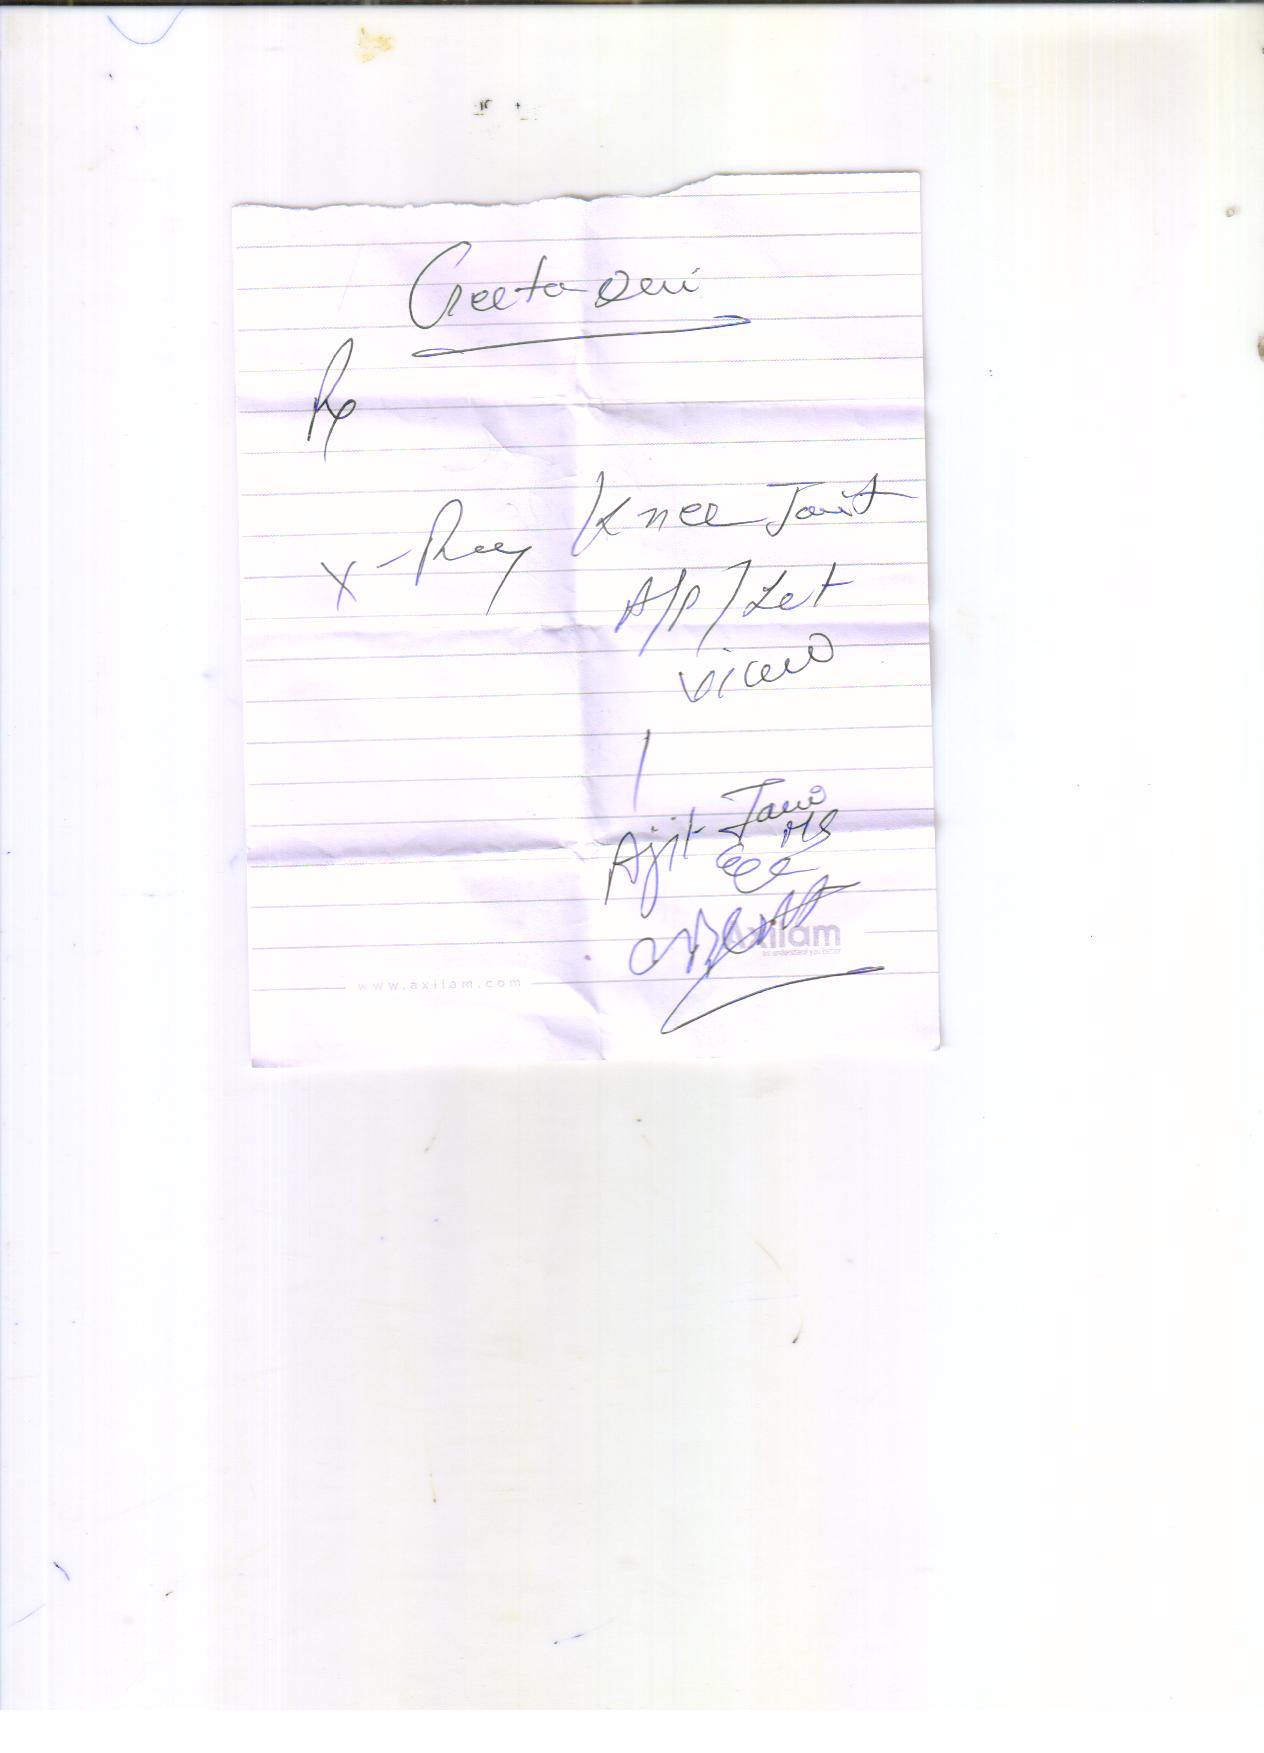 Geeta Devi
Rx
X-Ray Knee Joint
A/P / Lat
View
Ajit Jain
MS
Axilam
www.axilam.com